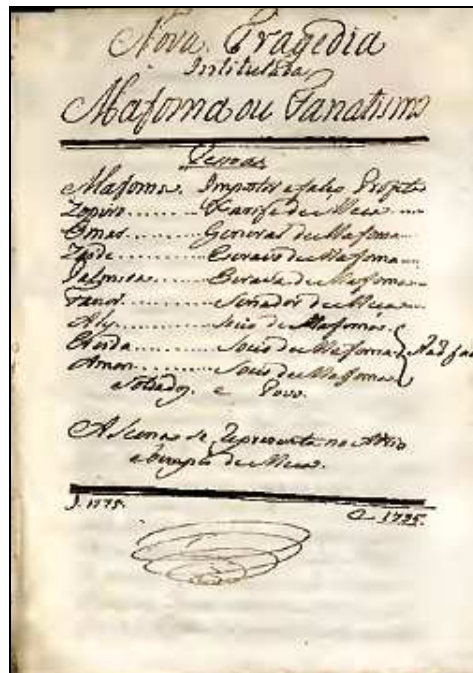 Nova Tragedia
Intitulada
Mafoma ou Fanatismo
Pessoas
Mafoma. Impostor e falço Profeta
Zopiro........Xarife de Meca
Omar.........General de Mafoma
Zaide..........Escravo de Mafoma
Palmira.......Escrava de Mafoma
Fanor..........Senador de Meca
Aly..............Socio de Mafoma
Socio de Mafoma
Amon..........Socio de Mafoma
Soldados. e Povo.
A Scena se Representa no Atrio
e templo de Meca.
J. 1775. C. 1795.